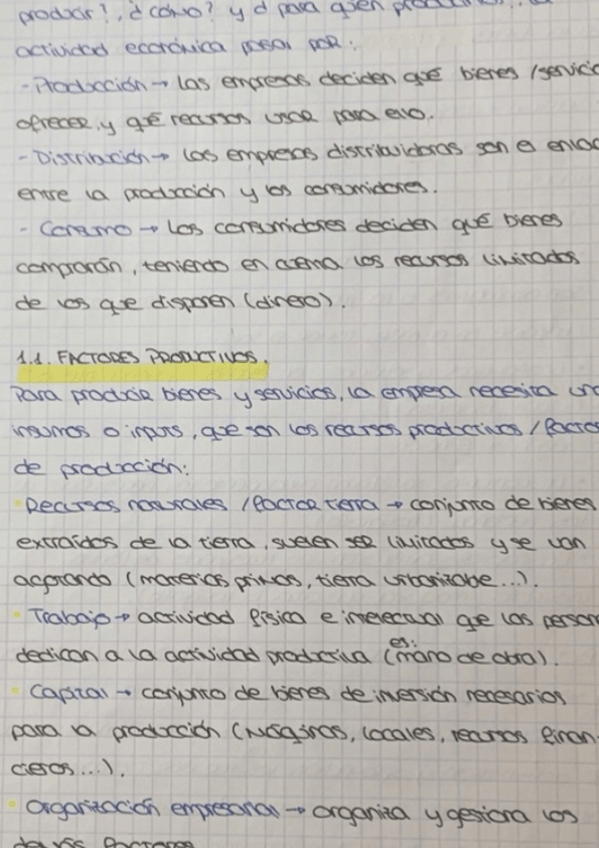 producir?, ¿cómo? y ¿ para quién
actividad económica pasa por:
- Producción → Las empresas deciden qué bienes /servicio
ofrecer, y qué recursos usar para ello.
- Distribución → Las empresas distribuidoras son el enlac
entre la producción y los consumidores.
- Consumo → Los consumidores deciden qué bienes
comprarán, teniendo en cuenta los recursos limitados
de los que disponen (dinero).
1.1. FACTORES PRODUCTIVOS.
Para producir bienes y servicios, la empesa necesita un
insumos o inputs, que son los recursos productivos / factor
de producción:
Recursos naturales / factor tierra → conjunto de bienes
extraídos de la tierra, suelen ser limitados y se van
agotando (materias primas, tierra urbanizable...).
Trabajo → actividad física e intelectual que las person
dedican a la actividad productiva (es: mano de obra).
Capital → conjunto de bienes de inversión necesarios
para la producción (máquinas, locales, recursos finan-
cieros...).
Organización empresarial → organiza y gestiona los
demás factores